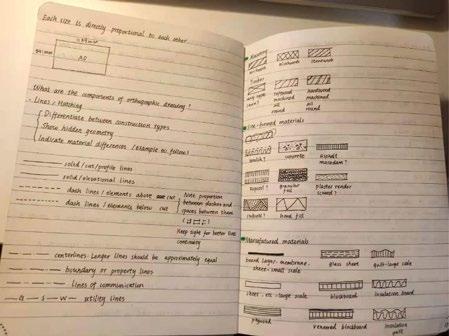 Each size is directly proportional to each other
1189mm
841mm
A0
What are the components of orthographic drawing?
- Lines / Hatching
Differentiate between construction types
Show hidden geometry
Indicate material differences (example to follow)
solid / cut / profile lines
solid / elevational lines
dash lines / elements above cut
dash lines / elements below cut
Note proportion
between dashes and
spaces between them
Keep tight for better line
continuity
centerlines Longer lines should be approximately equal
boundary or property lines
lines of communication
G S W utility lines
Masonry
brickwork
blockwork
stonework
Timber
any type
sawn
softwood
machined
all
round
hardwood
machined
all
round
Site-formed materials
concrete
asphalt
macadam?
topsoil?
granular
fill
plaster render
screed?
subsoil?
hard fill
Manufactured materials
board layer/membrane
sheet-small scale
glass sheet
quilt-large scale
sheet etc-large scale
blockboard
insulation board
plywood
veneered blockboard
insulation
quilt